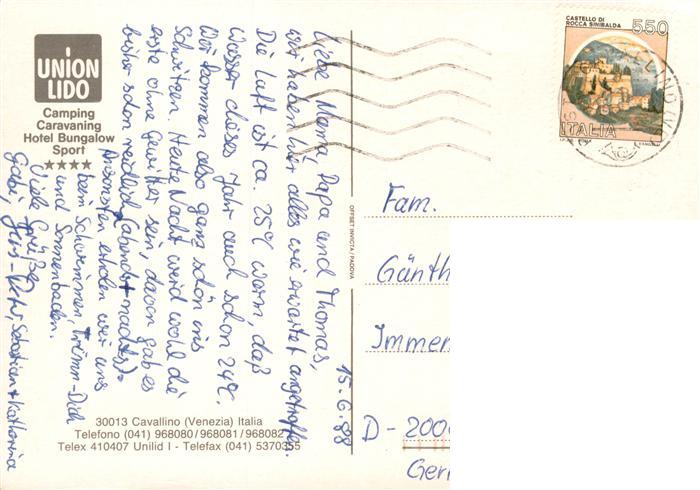 UNION
LIDO
Camping
Caravaning
Hotel Bungalow
Sport
★★★★
CASTELLO DI
ROCCA SINIBALDA
550
ITALIA
15.6.88
Liebe Mama, Papa und Thomas,
wir haben hier alles wie erwartet angetroffen.
Die Luft ist ca. 25°C warm, daß
Wasser dieses Jahr auch schon 24°C.
Wir kommen also ganz schön ins
Schwitzen. Heute Nacht werd wohl die
erste ohne Gewitter sein, davon gab es
bisher schon reichlich (abends + nachts).
Ansonsten erholen wir uns
beim Schwimmen, Trimm-Dich
und Sonnenbaden.
Viele Grüße
Gabi, Sebastian + Katharina
OFFSET INVICTA / PADOVA
Fam.
Günth
Immen
D-2000
Ger
30013 Cavallino (Venezia) Italia
Telefono (041) 968080/968081/968082
Telex 410407 Unilid I - Telefax (041) 5370355